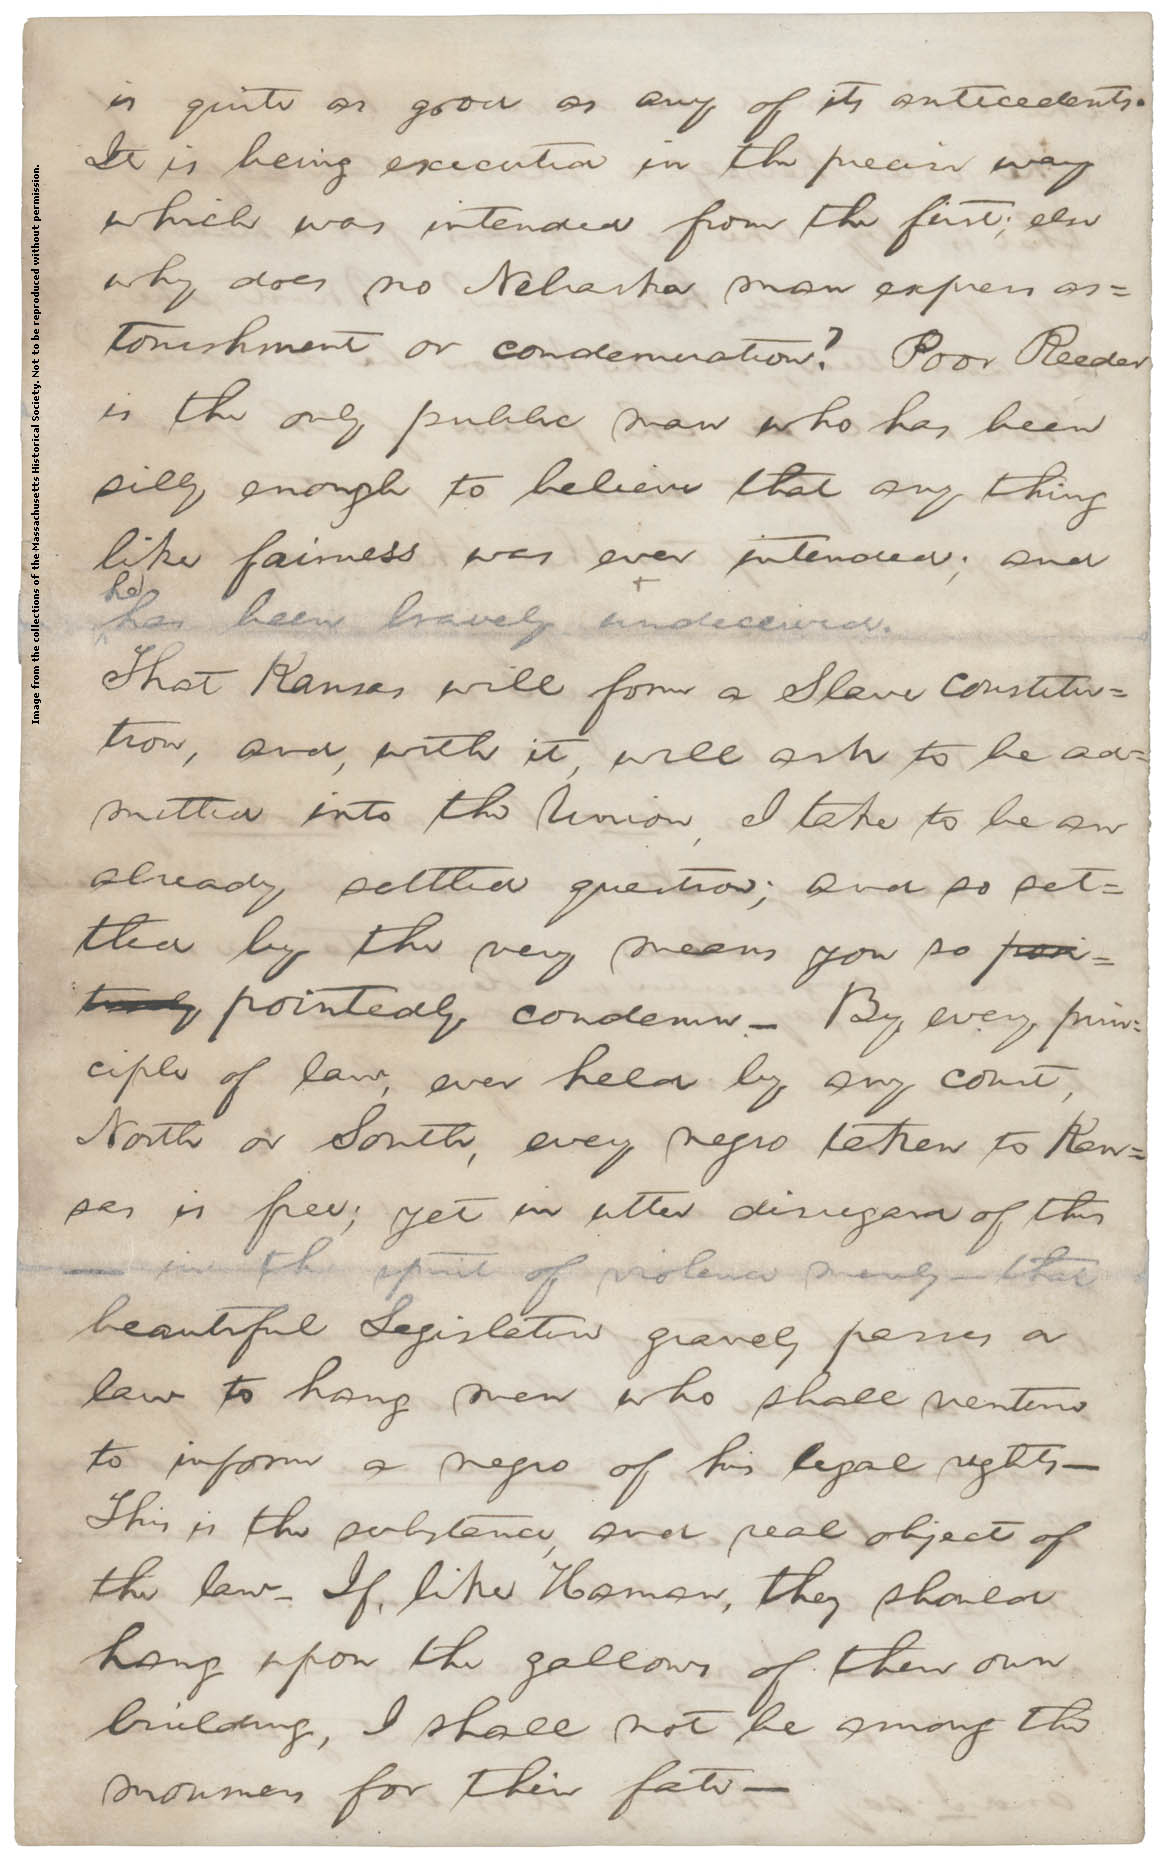 is quite as good as any of its antecedents.
It is being executed in the precise way
which was intended from the first; else
why does no Nebraska man express as=
tonishment or condemnation? Poor Reeder
is the only public man who has been
silly enough to believe that any thing
like fairness was ever intended; and
he
has been bravely undeceived.
That Kansas will form a Slave constitu=
tion, and, with it, will ask to be ad=
mitted into the Union, I take to be an
already settled question; and so set=
tled by the very means you so posi=
tively pointedly condemn— By every prin=
ciple of law, ever held by any court,
North or South, every negro taken to Kan=
sas is free; yet in utter disregard of this
— in the spirit of violence merely — that
beautiful Legislature gravely passes a
law to hang men who shall venture
to inform a negro of his legal rights—
This is the substance, and real object of
the law— If, like Haman, they should
hang upon the gallows of their own
building, I shall not be among the
mourners for their fate—
Image from the collections of the Massachusetts Historical Society. Not to be reproduced without permission.